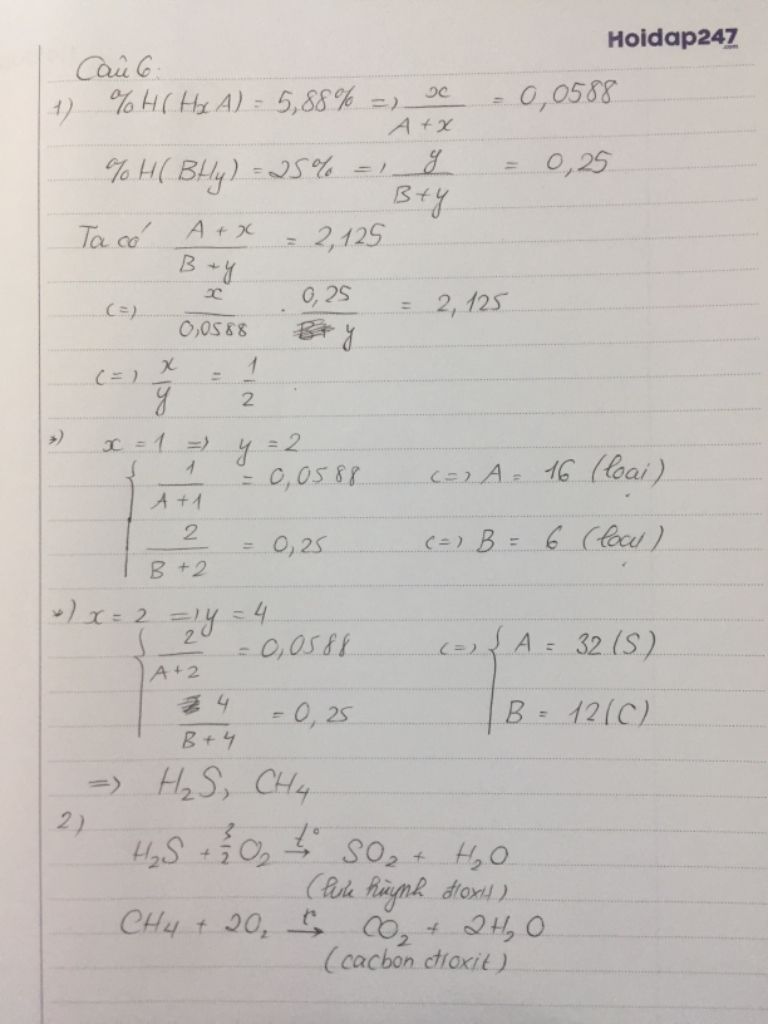 Hoidap247.com
Câu 6:
1) %H(HxA) = 5,88% => x/(A+x) = 0,0588
%H(BHy) = 25% => y/(B+y) = 0,25
Ta có (A+x)/(B+y) = 2,125
(=) x/0,0588 . 0,25/y = 2,125
(=) x/y = 1/2
*) x = 1 => y = 2
{ 1/(A+1) = 0,0588 (=) A = 16 (loại)
2/(B+2) = 0,25 (=) B = 6 (loại)
*) x = 2 => y = 4
{ 2/(A+2) = 0,0588 (=) { A = 32 (S)
4/(B+4) = 0,25 B = 12 (C)
=> H₂S, CH₄
2)
H₂S + 3/2 O₂ t°→ SO₂ + H₂O
(lưu huỳnh đioxit)
CH₄ + 2O₂ t°→ CO₂ + 2H₂O
(cacbon đioxit)